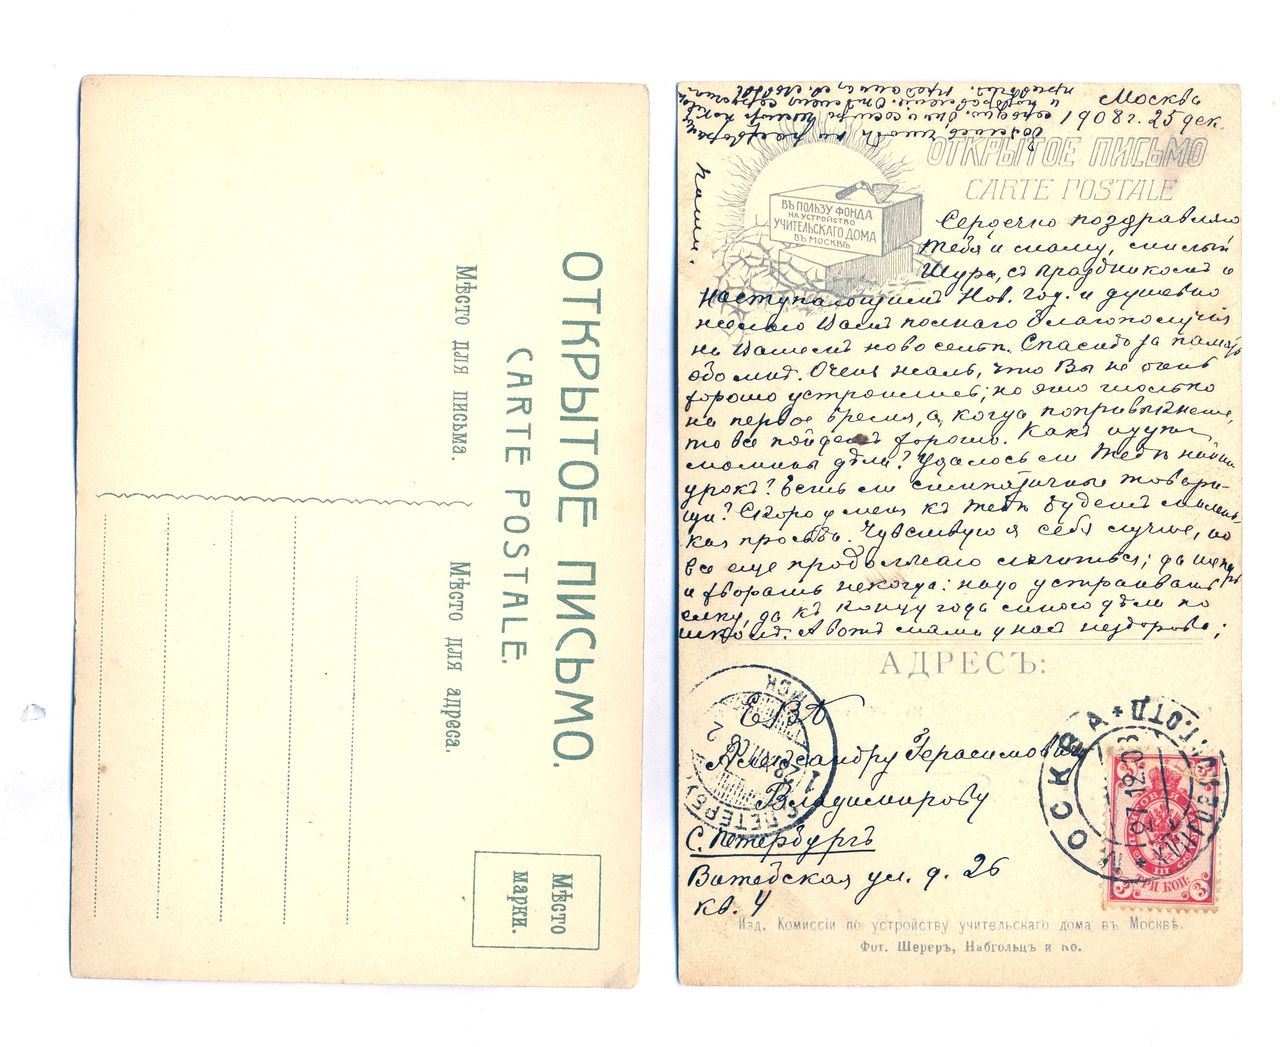 ОТКРЫТОЕ ПИСЬМО.
CARTE POSTALE.
Мѣсто для письма.
Мѣсто для адреса.
Мѣсто
марки.
Москва
1908 г. 25 дек.
ОТКРЫТОЕ ПИСЬМО
CARTE POSTALE
ВЪ ПОЛЬЗУ ФОНДА
НА УСТРОЙСТВО
УЧИТЕЛЬСКАГО ДОМА
ВЪ МОСКВѢ
Сердечно поздравляю
тебя и маму, милый
Шура, съ праздникомъ и
наступающимъ Нов. год. и душевно
желаю Вамъ полнаго благополучія
на Вашемъ новосельѣ. Спасибо за память
обо мнѣ. Очень жаль, что Вы не очень
хорошо устроились; но это только
на первое время, а, когда попривыкнете,
то все пойдетъ хорошо. Какъ идутъ
мамины дѣла? Удалось ли тебѣ найти
урокъ? Есть ли симпатичные товари-
щи? Скоро у меня къ тебѣ будетъ малень-
кая просьба. Чувствую я себя лучше, но
все еще продолжаю лѣчиться; да теперь
и хворать некогда: надо устраивать
елку, да къ концу года много дѣла по
школѣ. А вотъ мама у насъ нездорова;
АДРЕСЪ:
Е. В.
Александру Герасимовичу
Владимирову
С. Петербургъ
Витебская ул. д. 26
кв. 4
МОСКВА
27.12.08
С.ПЕТЕРБ
28 XII 08
ТРИ КОП.
3
3
Изд. Комиссіи по устройству учительскаго дома въ Москвѣ.
Фот. Шереръ, Набгольцъ и Ко.